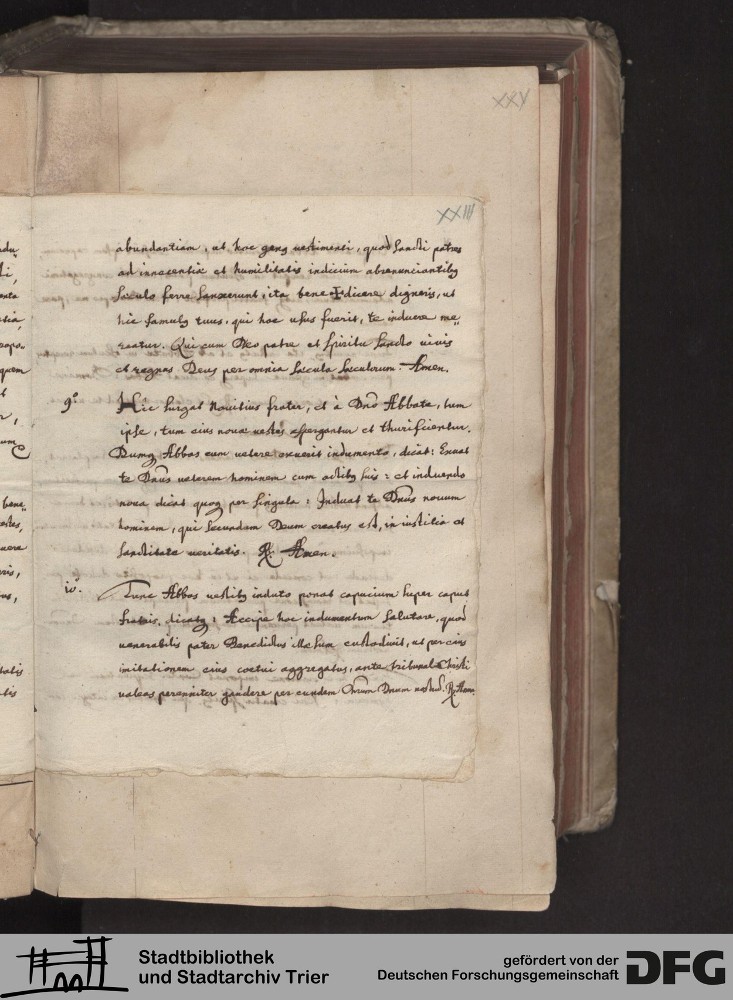 XXV
XXIII
abundantiam, ut hoc geng uestimenti, quod Sancti patres
ad innocentiæ et humilitatis indicium abrenunciantibg
sæculo ferre sanxerunt, ita bene✠dicere digneris, ut
hic famulg tuus, qui hoc usus fuerit, te induere me„
reatur. Qui cum Deo patre et spiritu sancto uiuis
et regnas Deus per omnia sæcula sæculorum. Amen.
9º Hic surgat Nouitius frater, et à Dnō Abbate, tum
ipse, tum eius nouæ uestes aspergantur et thurificientur.
Dumq Abbas eum uetere exuerit indumento, dicat: Exuat
te Dnūs ueterem hominem cum actibg suis: et induendo
noua dicat quoq per singula: Induat te Dnūs nouum
hominem, qui secundum Deum creatus est, in iustitia et
sanctitate ueritatis. ℟. Amen.
10. Tunc Abbas uestibg induto ponat capucium super caput
fratris, dicatq: Accipe hoc indumentum salutare, quod
uenerabilis pater Benedictus illæsum custodiuit, ut per eius
imitationem eius coetui aggregatus, ante tribunal Christi
ualeas perenniter gaudere per eundem Chrūm Dnum nostrū. ℟. Amen
Stadtbibliothek
und Stadtarchiv Trier
gefördert von der
Deutschen Forschungsgemeinschaft
DFG